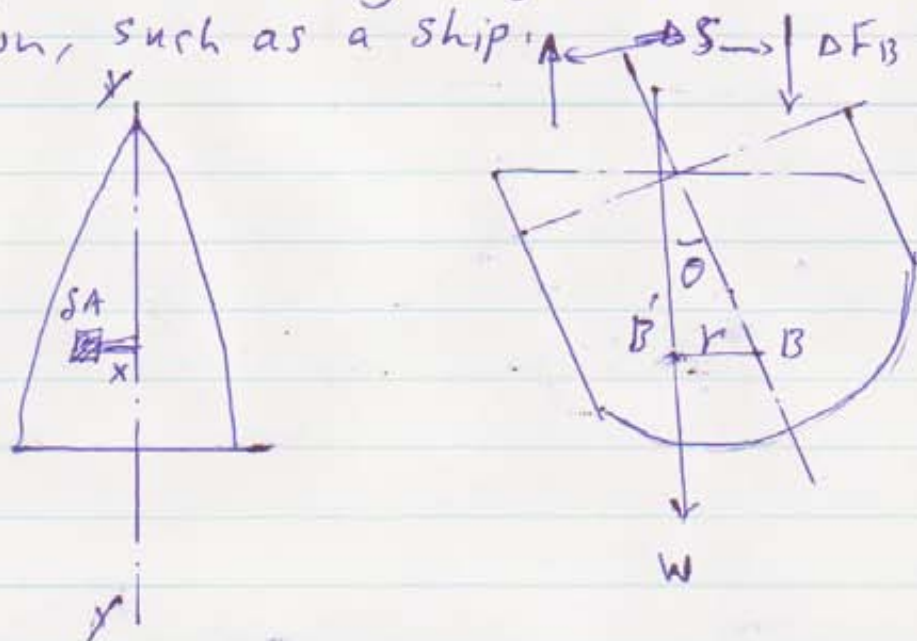 on, such as a ship.
S
Δ F_B
Y
δA
x
θ
B' r B
W
Y